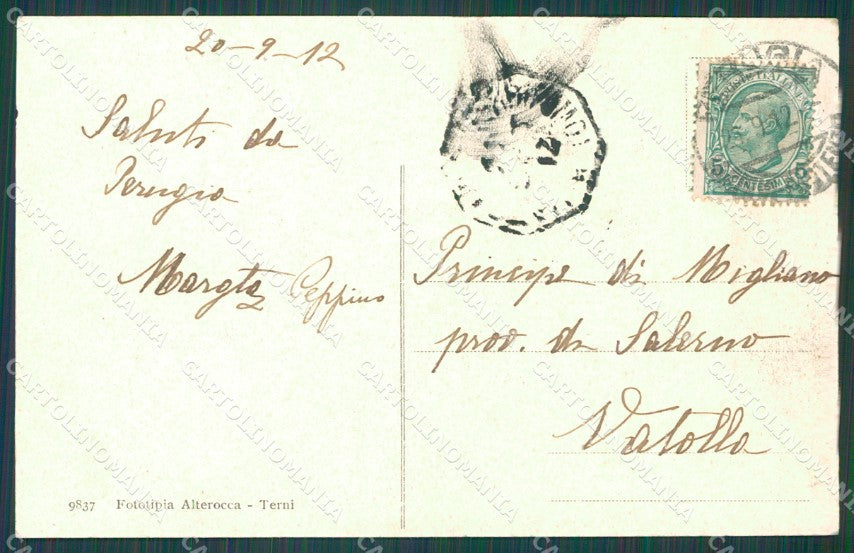 20-9-12
Saluti da
Perugia
Margta Peppino
Principe di Migliano
prov. di Salerno
Vatolla
9837 Fototipia Alterocca - Terni
CARTOLINOMANIA